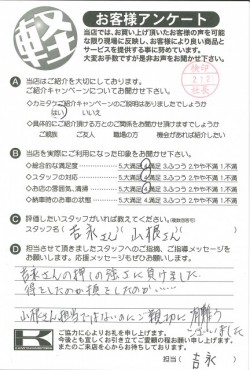 軽
お客様アンケート
当店では、お買い上げ頂いたお客様の声を可能
な限り現場に反映し、お客様により良い商品と
サービスを提供する事に努めています。
大変お手数ですが是非お声をお聞かせ下さい。
検印
社長
A 当店はご紹介を大切にしております。
ご紹介キャンペーンについてお聞かせ下さい。
◇カミタケご紹介キャンペーンのご説明はありましたでしょうか
はい いいえ
◇具体的にご紹介頂ける方とのご関係をお聞かせ頂けますでしょうか
ご親族 ご友人 職場の方 機会があれば紹介したい
B 当店を実際にご利用になった印象をお聞かせ下さい。
◇総合的な満足度 5.大満足 4.満足 3.ふつう 2.やや不満 1.不満
◇スタッフの対応 5.大満足 4.満足 3.ふつう 2.やや不満 1.不満
◇お店の雰囲気、清掃 5.大満足 4.満足 3.ふつう 2.やや不満 1.不満
◇納車時のお車の状態 5.大満足 4.満足 3.ふつう 2.やや不満 1.不満
C 評価したいスタッフがいれば教えてください。(複数回答可)
スタッフ名( 吉永さん 山根さん )
D 担当させて頂きましたスタッフへのご指摘、ご指導メッセージを
お願いします。応援メッセージもぜひお願いします。
吉永さんの押しの強さに負けました
得をしたのか損をしたのか……
山根さん担当ではないのにご親切に有難う
ございました
K
ご協力に心よりお礼を申し上げます。
今後とも宜しくお引き立てご愛顧の程お願い申し上げます。
またのご来店を心からお待ちしております。
担当( 吉永 )